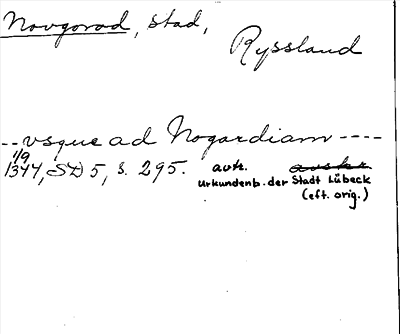 Novgorod, stad,
Ryssland
-- vsque ad Nogardiam ----
1/9
1344, SD 5, s. 295. avtr. avskr.
Urkundenb. der Stadt Lübeck
(eft. orig.)